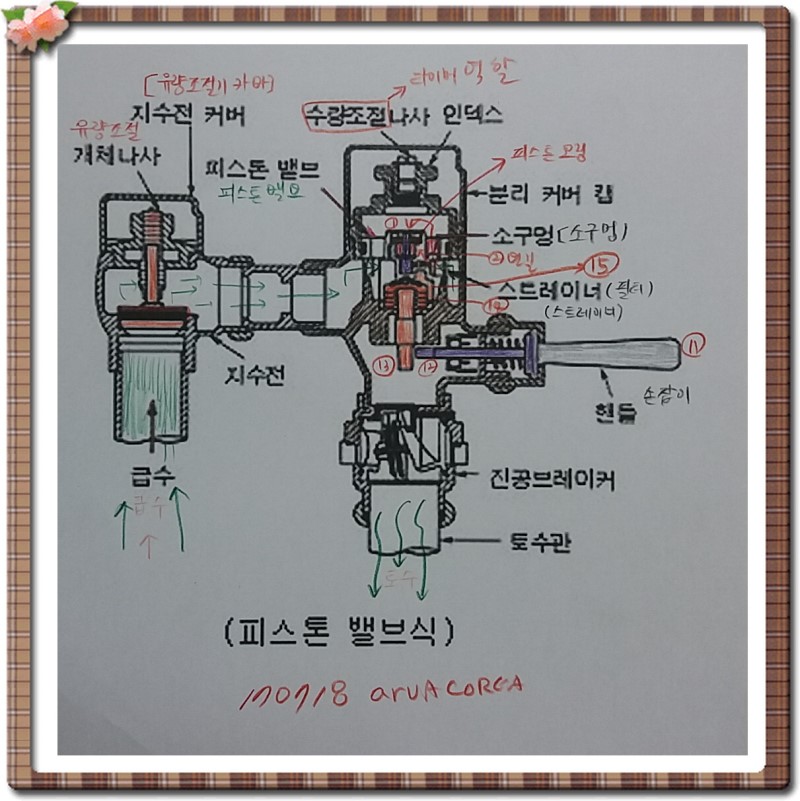 [유량조절기 카바]
타이머 역할
지수전 커버
수량조절나사 인덱스
유량조절
개체나사
피스톤 밸브
피스톤 밸브
피스톤 오링
분리 커버 캡
소구멍 [소구멍]
⑮
스트레이너 (필터)
(스트레이너)
⑬
⑫
⑪
지수전
핸들
손잡이
급수
급수
진공브레이커
토수관
토수
(피스톤 밸브식)
170718 arVACOREA